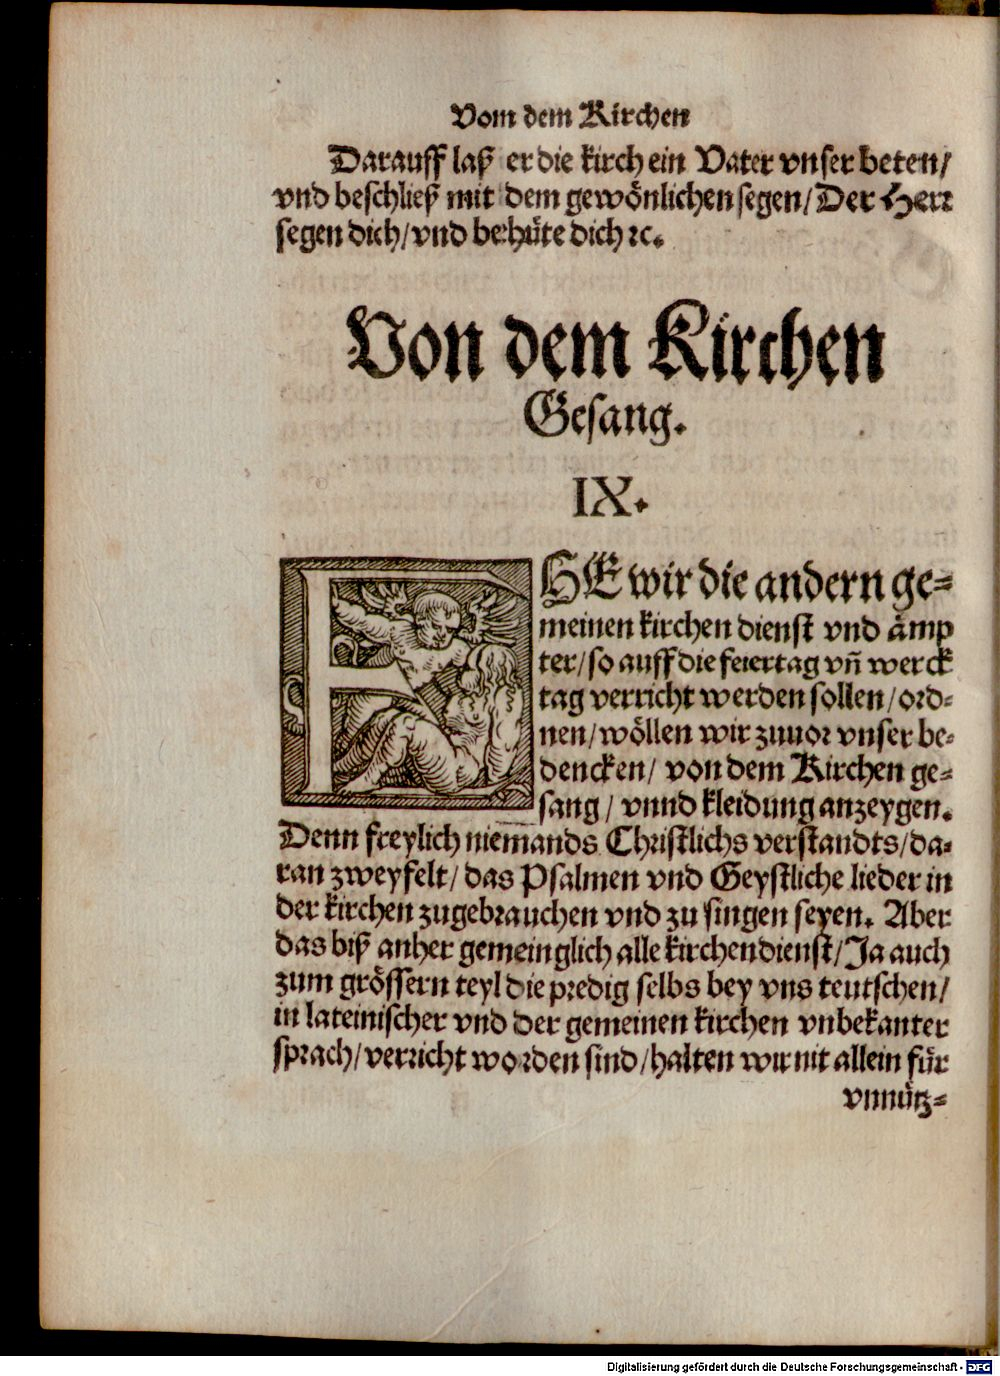 Vom dem Kirchen
Darauff laß er die kirch ein Vater vnser beten/
vnd beschließ mit dem gewönlichen segen/ Der Herr
segen dich/ vnd behüte dich ꝛc.
Von dem Kirchen
Gesang.
IX.
EHE wir die andern ge⸗
meinen kirchen dienst vnd ämp
ter/ so auff die feiertag vñ werck
tag verricht werden sollen/ ord⸗
nen/ wöllen wir zuuor vnser be⸗
dencken/ von dem Kirchen ge⸗
sang/ vnnd kleidung anzeygen.
Denn freylich niemands Christlichs verstandts/ da⸗
ran zweyfelt/ das Psalmen vnd Geystliche lieder in
der kirchen zugebrauchen vnd zu singen seyen. Aber
das biß anher gemeinglich alle kirchendienst/ Ja auch
zum grössern teyl die predig selbs bey vns teutschen/
in lateinischer vnd der gemeinen kirchen vnbekanter
sprach/ verricht worden sind/ halten wir nit allein für
vnnütz⸗
Digitalisierung gefördert durch die Deutsche Forschungsgemeinschaft - DFG